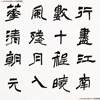 行盡江南
數十程曉
風殘月入
華清朝元